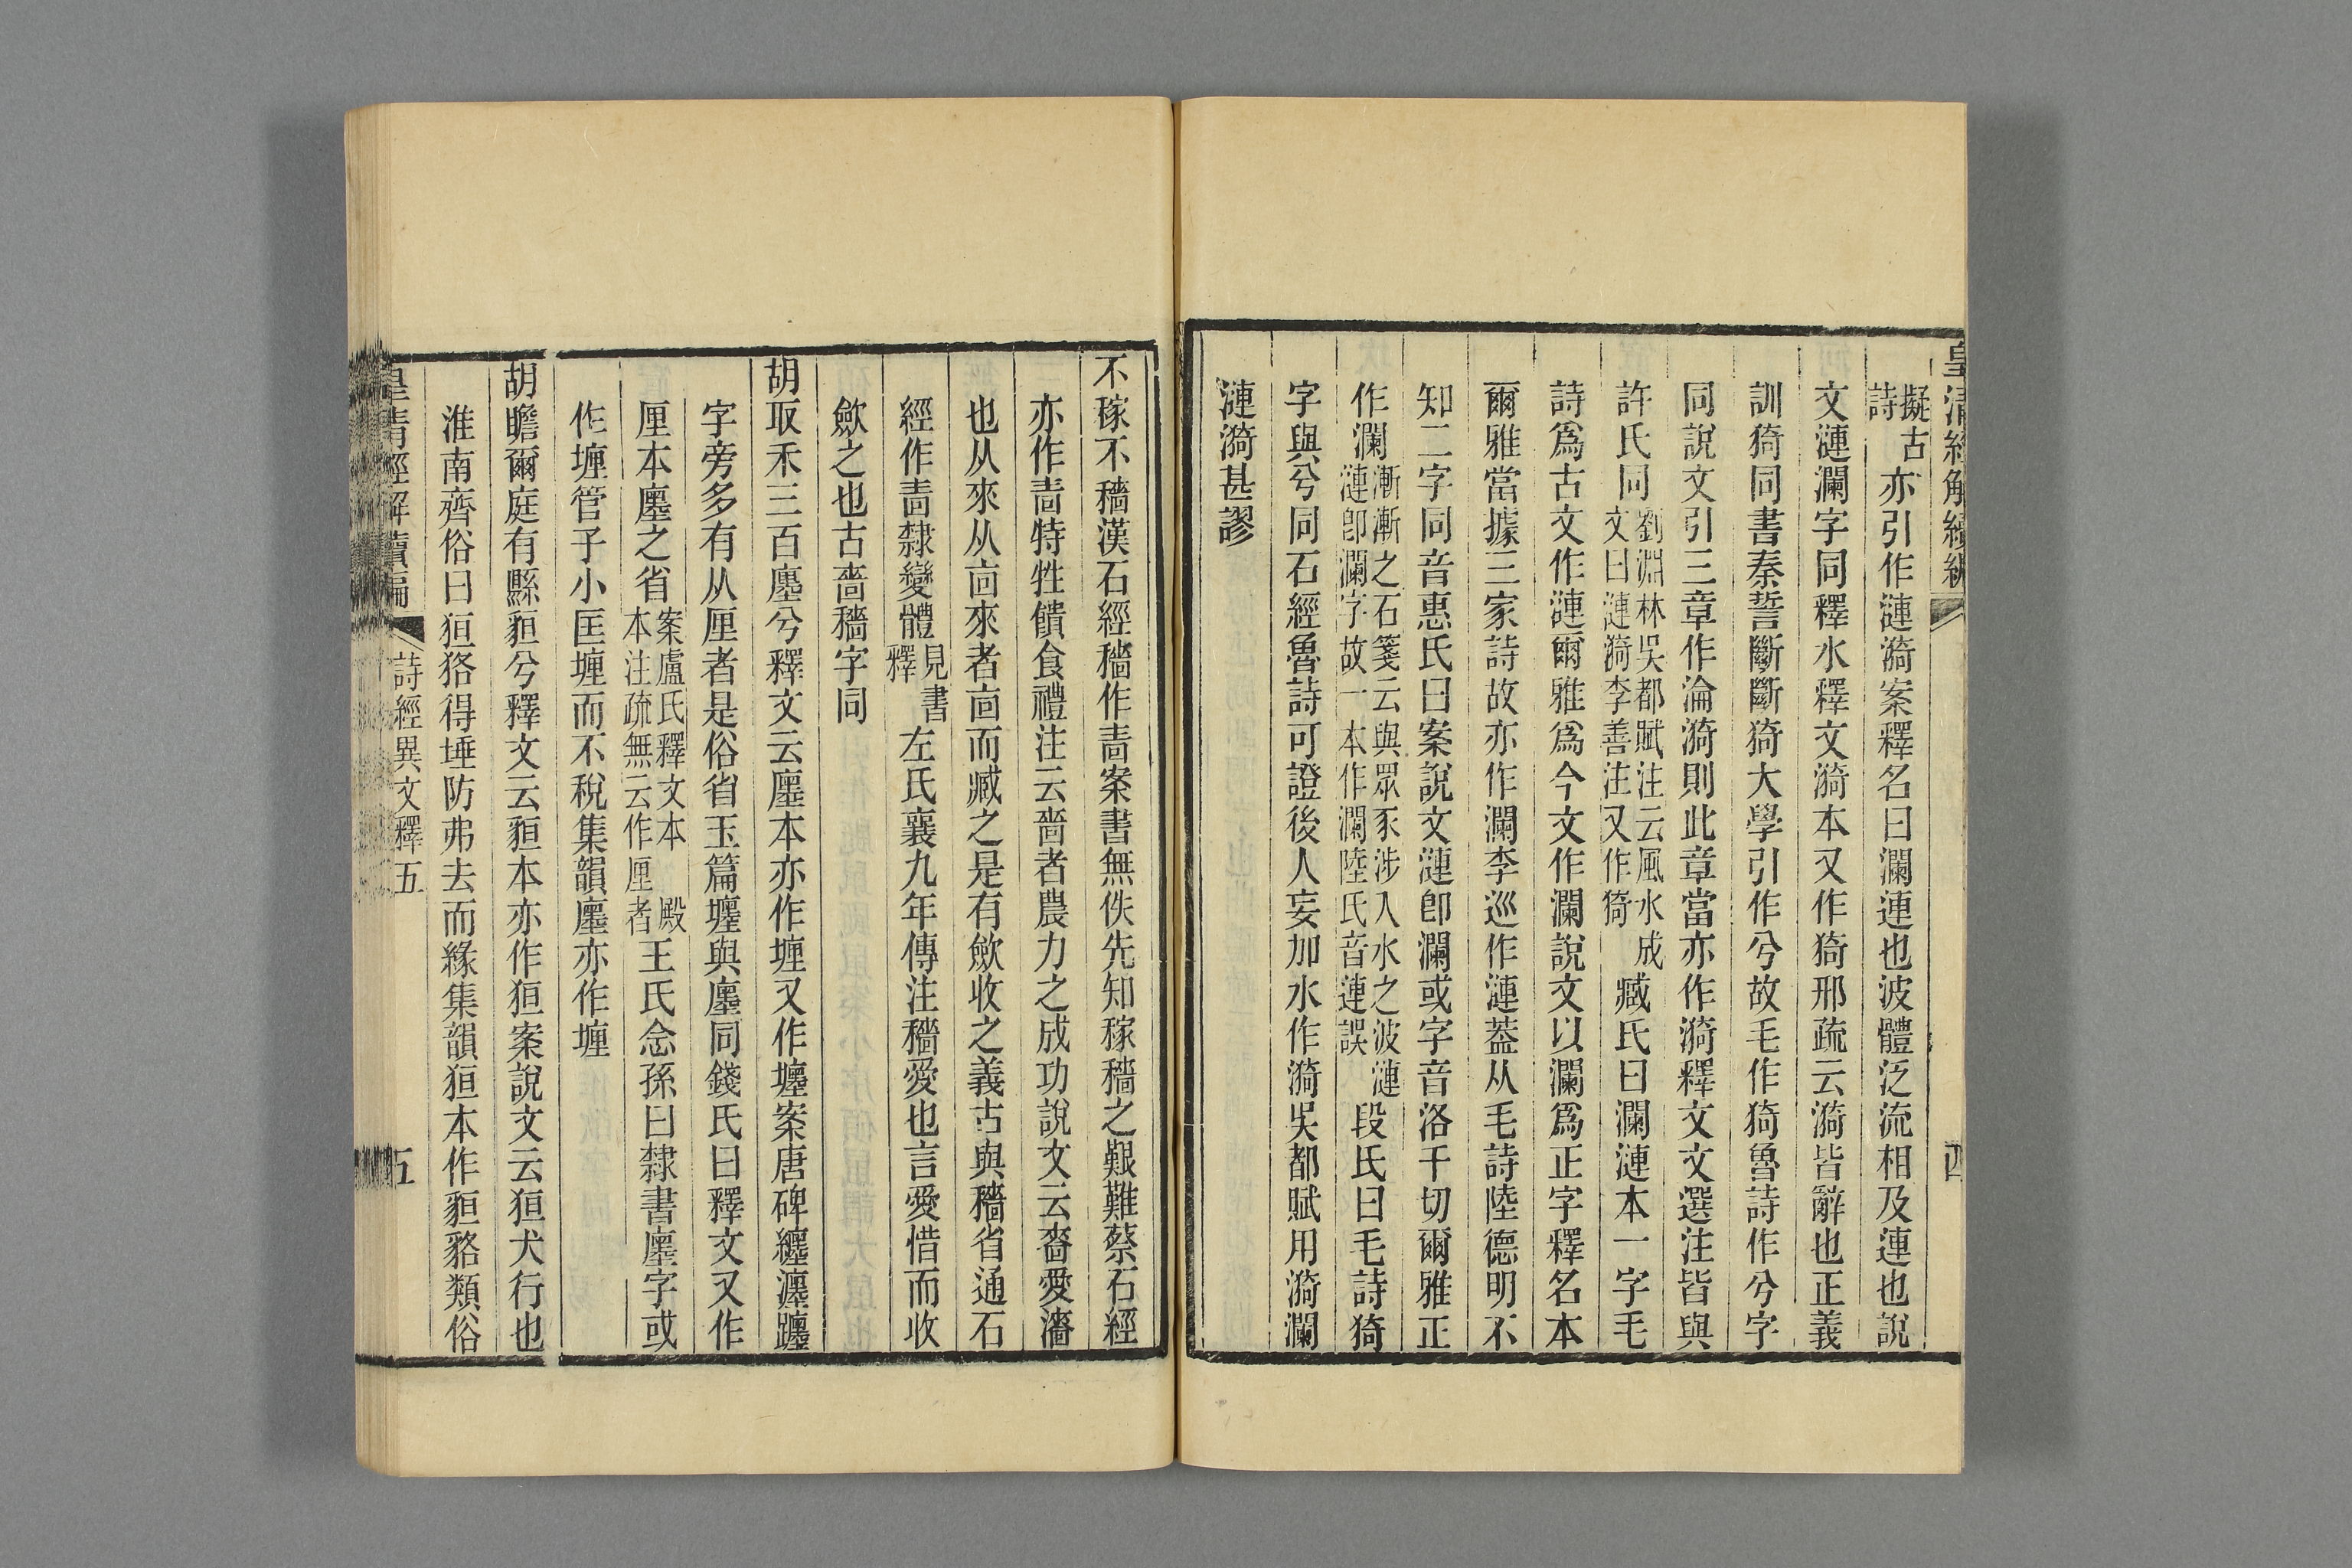 皇清經解續編
四
擬古詩亦引作漣漪案釋名曰瀾連也波體泛流相及連也說
文漣瀾字同釋水釋文漪本又作猗邢疏云漪皆辭也正義
訓猗同書秦誓斷斷猗大學引作兮故毛作猗魯詩作兮字
同說文引三章作淪漪則此章當亦作漪釋文文選注皆與
許氏同劉淵林吳都賦注云風水成文曰漣漪李善注又作猗臧氏曰瀾漣本一字毛
詩爲古文作漣爾雅爲今文作瀾說文以瀾爲正字釋名本
爾雅當據三家詩故亦作瀾李巡作漣葢从毛詩陸德明不
知二字同音惠氏曰案說文漣卽瀾或字音洛干切爾雅正
作瀾漸漸之石箋云與眾豕涉入水之波漣漣卽瀾字故一本作瀾陸氏音連誤段氏曰毛詩猗
字與兮同石經魯詩可證後人妄加水作漪吳都賦用漪瀾
漣漪甚謬
不稼不穡漢石經穡作嗇案書無佚先知稼穡之艱難蔡石經
亦作嗇特牲饋食禮注云嗇者農力之成功說文云嗇愛濇
也从來从㐭來者㐭而臧之是有歛收之義古與穡省通石
經作嗇隸變體見書釋左氏襄九年傳注穡愛也言愛惜而收
歛之也古嗇穡字同
胡取禾三百廛兮釋文云廛本亦作堳又作壥案唐碑纏瀍躔
字旁多有从厘者是俗省玉篇壥與廛同錢氏曰釋文又作
厘本廛之省案盧氏釋文本殿本注疏無云作厘者王氏念孫曰隸書廛字或
作㙻管子小匡㙻而不稅集韻廛亦作㙻
胡瞻爾庭有縣貆兮釋文云貆本亦作狟案說文云狟犬行也
淮南齊俗曰狟狢得埵防弗去而緣集韻狟本作貆貉類俗
皇清經解續編
詩經異文釋五
五